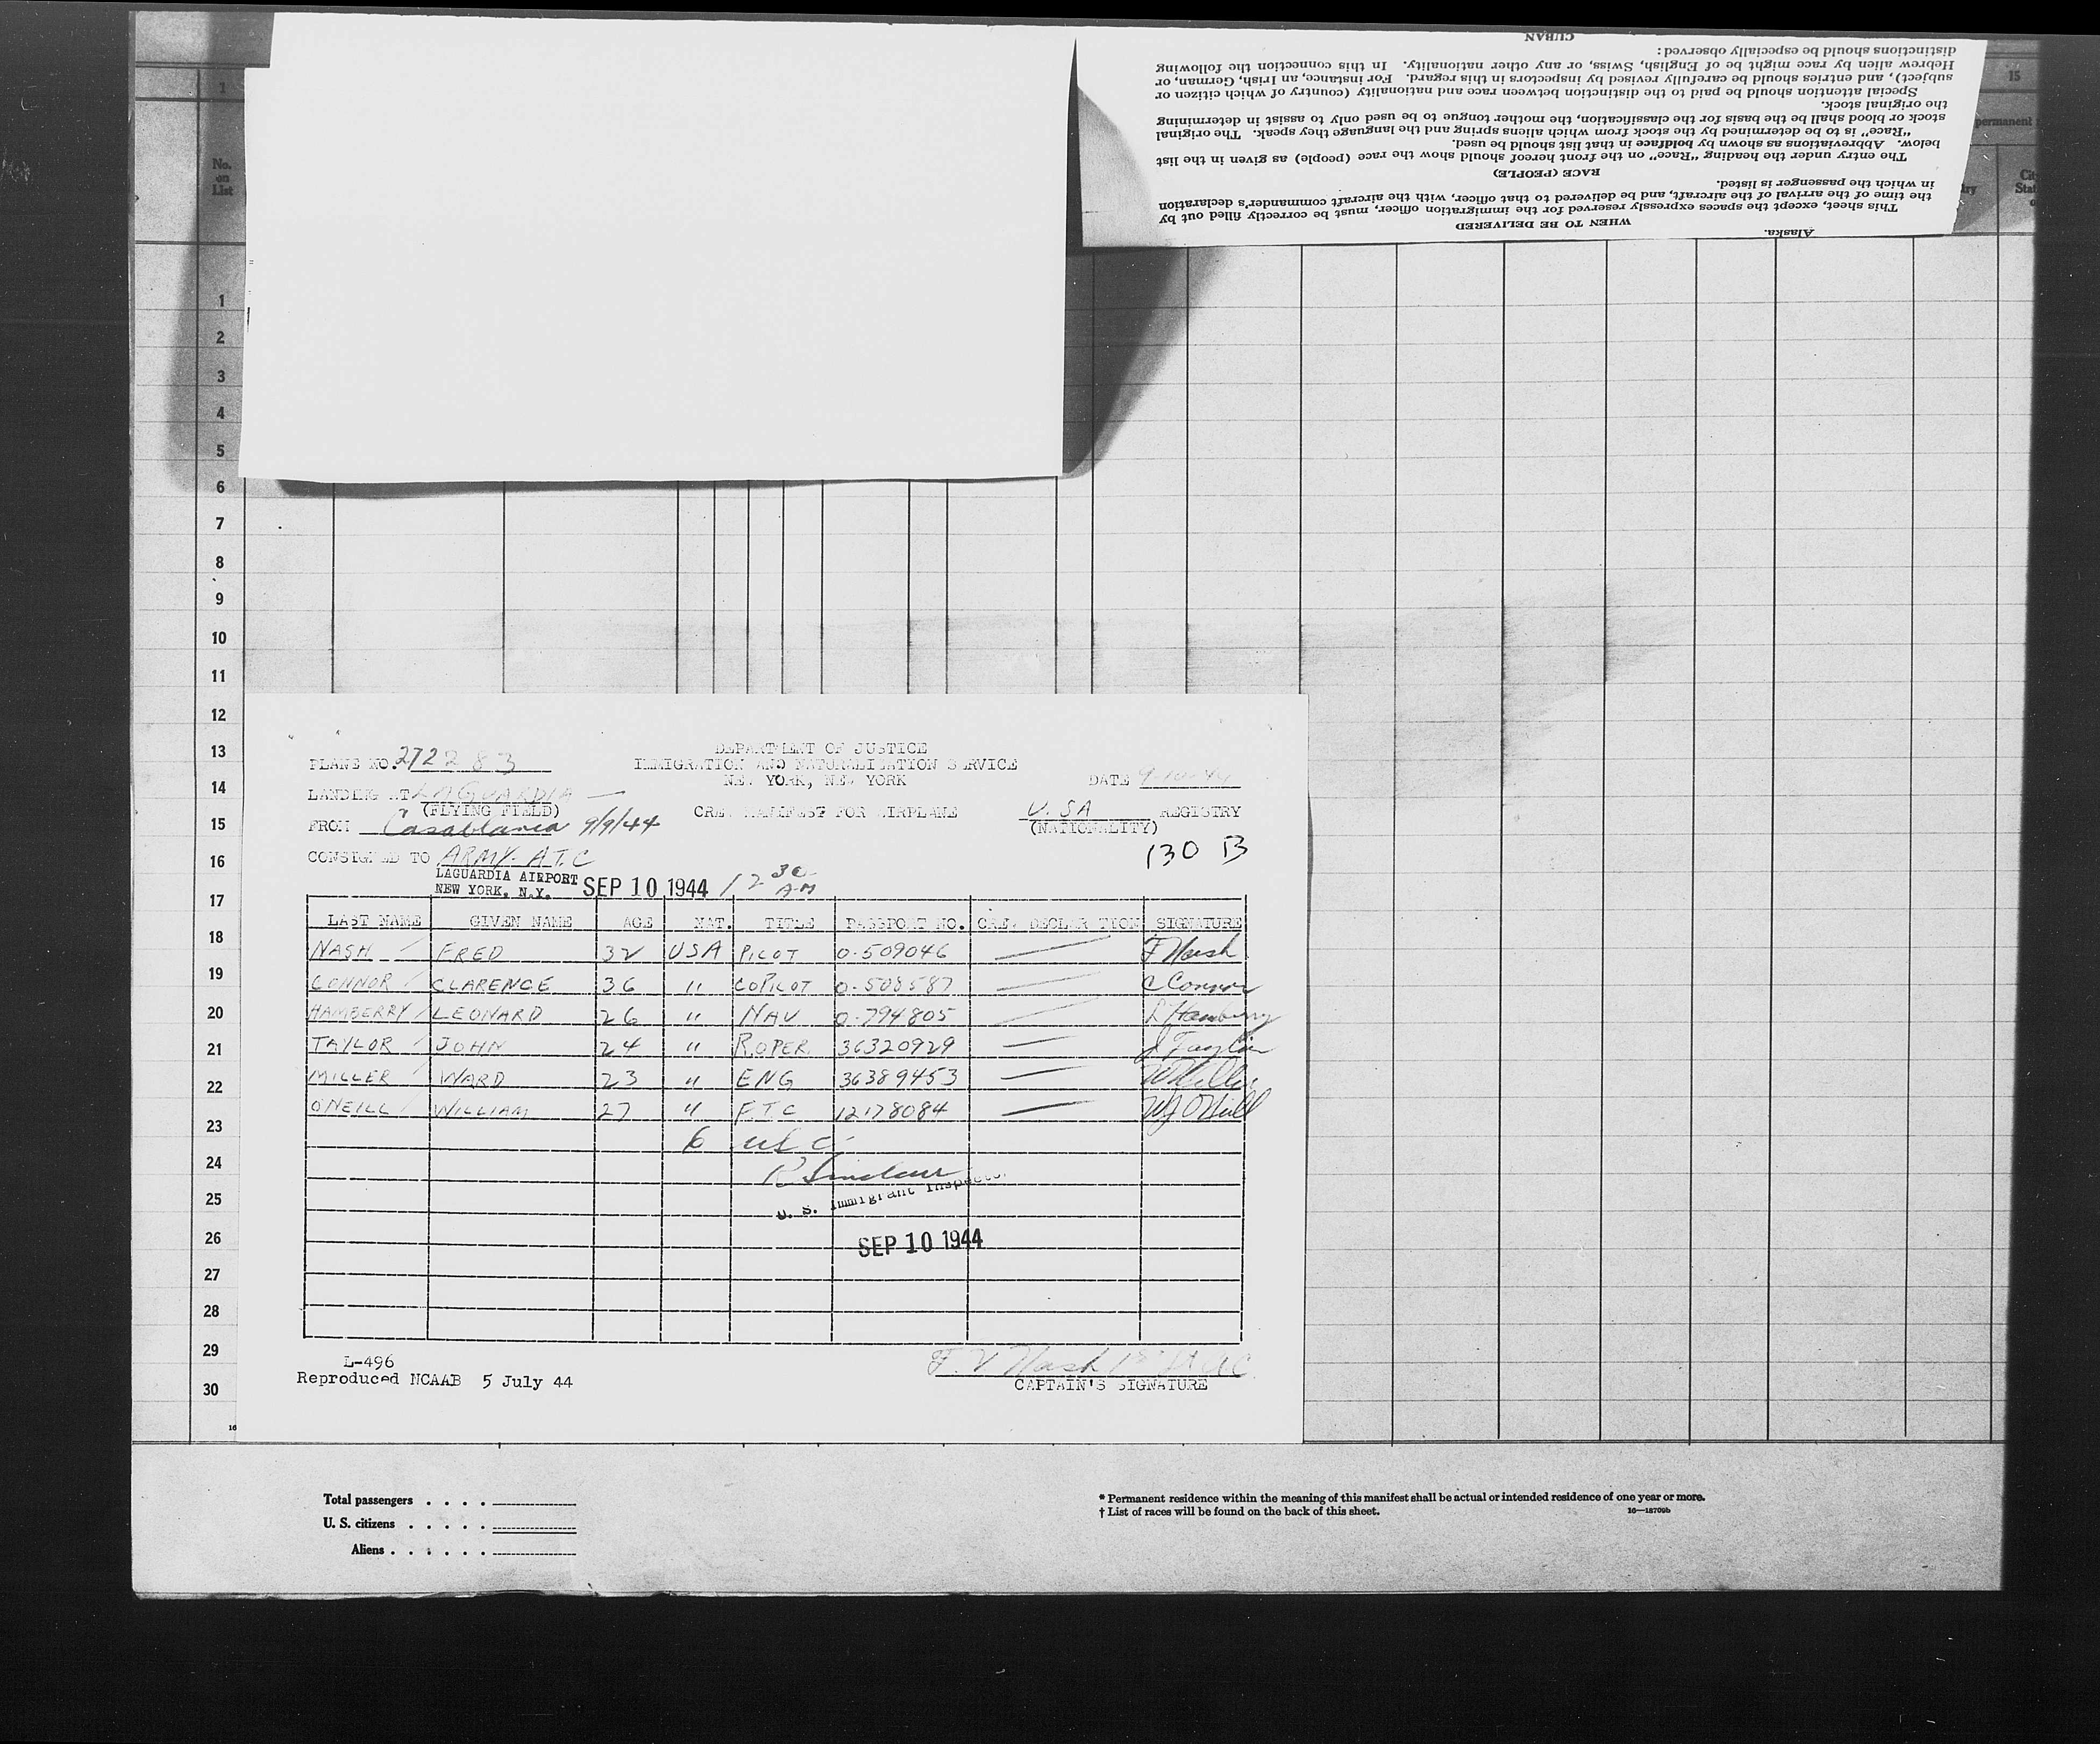 1
No.
on
List
CUBAN
distinctions should be especially observed:
Hebrew alien by race might be of English, Swiss, or any other nationality. In this connection the following
subject), and entries should be carefully revised by inspectors in this regard. For instance, an Irish, German, or
Special attention should be paid to the distinction between race and nationality (country of which citizen or
the original stock.
stock or blood shall be the basis for the classification, the mother tongue to be used only to assist in determining
"Race" is to be determined by the stock from which aliens spring and the language they speak. The original
below. Abbreviations as shown by boldface in that list should be used.
The entry under the heading "Race" on the front hereof should show the race (people) as given in the list
RACE (PEOPLE)
in which the passenger is listed.
the time of the arrival of the aircraft, and be delivered to that officer, with the aircraft commander's declaration
This sheet, except the spaces expressly reserved for the immigration officer, must be correctly filled out by
WHEN TO BE DELIVERED
Alaska.
15
permanent
1
2
3
4
5
6
7
8
9
10
11
12
13
14
15
16
17
18
19
20
21
22
23
24
25
26
27
28
29
30
16
DEPARTMENT OF JUSTICE
PLANE NO. 272283 IMMIGRATION AND NATURALIZATION SERVICE
NEW YORK, NEW YORK DATE 9-10-44
LANDING AT LAGUARDIA
(FLYING FIELD) CREW MANIFEST FOR AIRPLANE U.SA REGISTRY
FROM Casablanca 9/9/44 (NATIONALITY)
CONSIGNED TO ARMY. A.T.C 130 B
LAGUARDIA AIRPORT
NEW YORK, N.Y. SEP 10 1944 12 30 AM
LAST NAME GIVEN NAME AGE NAT. TITLE PASSPORT NO. CREW DECLARATION SIGNATURE
NASH FRED 32 USA PILOT 0-509046 F Nash
CONNOR CLARENCE 36 " COPILOT 0-508587 C Connor
HAMBERRY LEONARD 26 " NAV 0-794805 L Hamberry
TAYLOR JOHN 24 " R.OPER 36320929 J Taylor
MILLER WARD 23 " ENG 36389453 W Miller
O'NEILL WILLIAM 27 " F.T.C 12178084 WJ O'Neill
6 USC
R Sinclair
U. S. Immigrant Inspector
SEP 10 1944
L-496 F. V Nash 1st Lt AC
Reproduced NCAAB 5 July 44 CAPTAIN'S SIGNATURE
Total passengers . . . .
U. S. citizens . . . . .
Aliens . . . . . .
* Permanent residence within the meaning of this manifest shall be actual or intended residence of one year or more.
† List of races will be found on the back of this sheet. 16—18709b